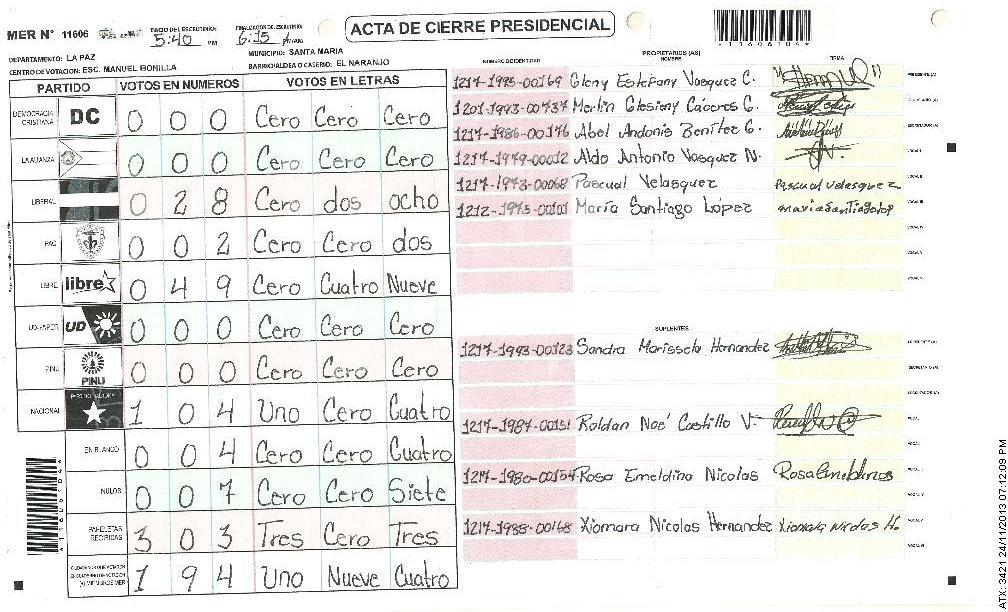 MER N° 11606
INICIO DEL ESCRUTINIO:
5:40 PM
FINALIZACION DEL ESCRUTINIO:
6:15 PM
ACTA DE CIERRE PRESIDENCIAL
*11606104*
DEPARTAMENTO: LA PAZ
MUNICIPIO: SANTA MARIA
CENTRO DE VOTACION: ESC. MANUEL BONILLA
BARRIO/ALDEA O CASERIO: EL NARANJO
PARTIDO VOTOS EN NUMEROS VOTOS EN LETRAS
DEMOCRACIA CRISTIANA DC 0 0 0 Cero Cero Cero
LA ALIANZA 0 0 0 Cero Cero Cero
LIBERAL 0 2 8 Cero dos ocho
PAC 0 0 2 Cero Cero dos
LIBRE libre 0 4 9 Cero Cuatro Nueve
UD-FAPER UD 0 0 0 Cero Cero Cero
PINU PINU 0 0 0 Cero Cero Cero
NACIONAL PARTIDO NACIONAL 1 0 4 Uno Cero Cuatro
EN BLANCO 0 0 4 Cero Cero Cuatro
NULOS 0 0 7 Cero Cero Siete
PAPELETAS RECIBIDAS 3 0 3 Tres Cero Tres
1 9 4 Uno Nueve Cuatro
NUMERO DE IDENTIDAD PROPIETARIOS (AS) NOMBRE FIRMA
1217-1995-00169 Gleny Estefany Vasquez C. PRESIDENTE (A)
1201-1993-00737 Merlin Glesiony Cáceres G. SECRETARIO (A)
1217-1986-00176 Abel Andonis Benítez G. ESCRUTADOR (A)
1217-1979-00012 Aldo Antonio Vasquez N. VOCAL I
1217-1973-00068 Pascual Velasquez Pascual Velasquez VOCAL II
1212-1975-00101 María Santiago López maria Santiago lop VOCAL III
VOCAL IV
VOCAL V
VOCAL VI
SUPLENTES
1217-1993-00123 Sandra Marissela Hernandez PRESIDENTE (A)
SECRETARIO (A)
ESCRUTADOR (A)
1217-1987-00151 Roldan Noé Castillo V. VOCAL I
VOCAL II
1217-1980-00154 Rosa Emeldina Nicolas Rosa Emeldina VOCAL III
VOCAL IV
1217-1985-00168 Xiomara Nicolas Hernandez Xiomara Nicolas H. VOCAL V
VOCAL VI
ATX: 3421 24/11/2013 07:12:09 PM